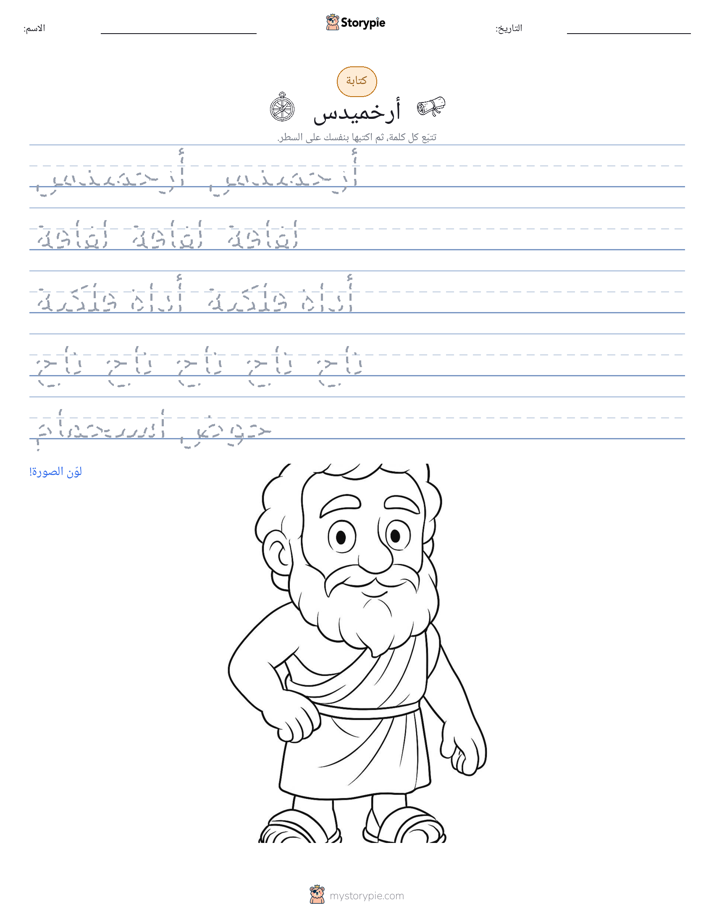 الاسم:
Storypie
التاريخ:
كتابة
أرخميدس
تتبّع كل كلمة، ثم اكتبها بنفسك على السطر.
أرخميدس أرخميدس
أداة فلكية أداة فلكية
تاج تاج تاج تاج تاج
حوض استحمام
لوّن الصورة!
mystorypie.com